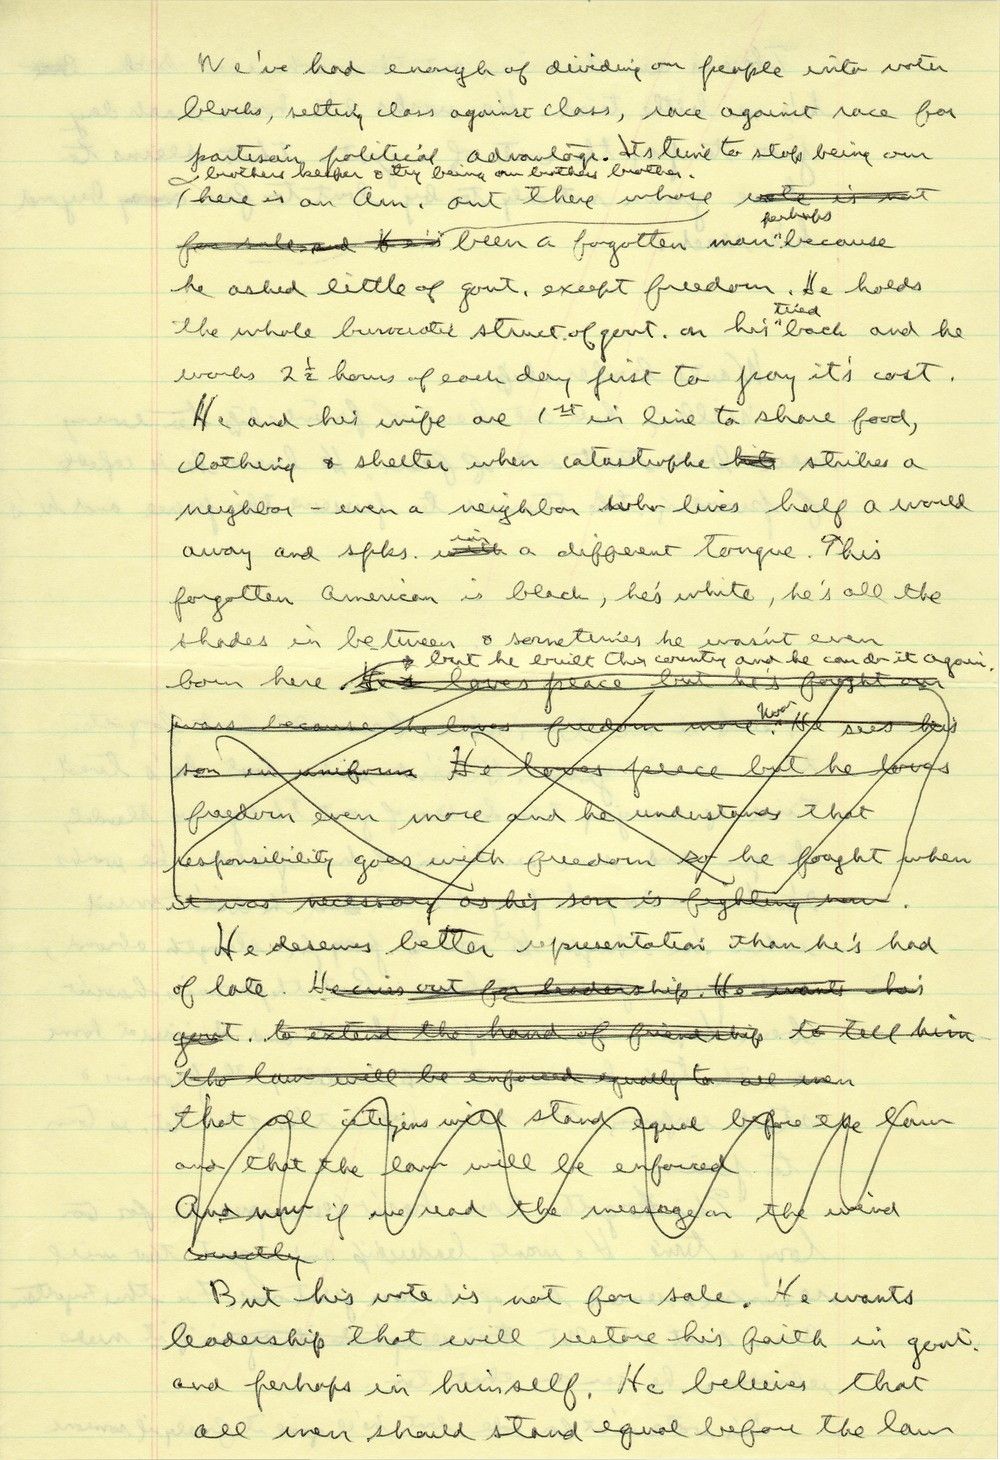 We've had enough of dividing our people into voter
blocks, setting class against class, race against race for
partisan, political advantage. Its time to stop being our
brothers keeper & try being our brothers brother.
There is an Am. out there whose vote is not
perhaps
for sale and He's been a forgotten man because
he asked little of govt. except freedom. He holds
tired
the whole burocratic struct. of govt. on his back and he
works 2 ½ hours of each day first to pay it's cost.
He and his wife are 1st in line to share food,
clothing & shelter when catastrophe hits strikes a
neighbor - even a neighbor who lives half a world
in
away and spks. with a different tongue. This
forgotten American is black, he's white, he's all the
shades in between & sometimes he wasn't even
& but he built this country and he can do it again.
born here. He's loves peace but he's fought our
wars because he loves freedom more. He sees his
son in uniform He loves peace but he loves
freedom even more and he understands that
responsibility goes with freedom so he fought when
it was necessary as his son is fighting now.
He deserves better representation than he's had
of late. He cries out for leadership. He wants his
govt. to extend the hand of friendship to tell him
the law will be enforced equally to all men
that all citizens will stand equal before the law
and that the law will be enforced
And now if we read the message on the wind
correctly
But his vote is not for sale. He wants
leadership that will restore his faith in govt.
and perhaps in himself. He believes that
all men should stand equal before the law